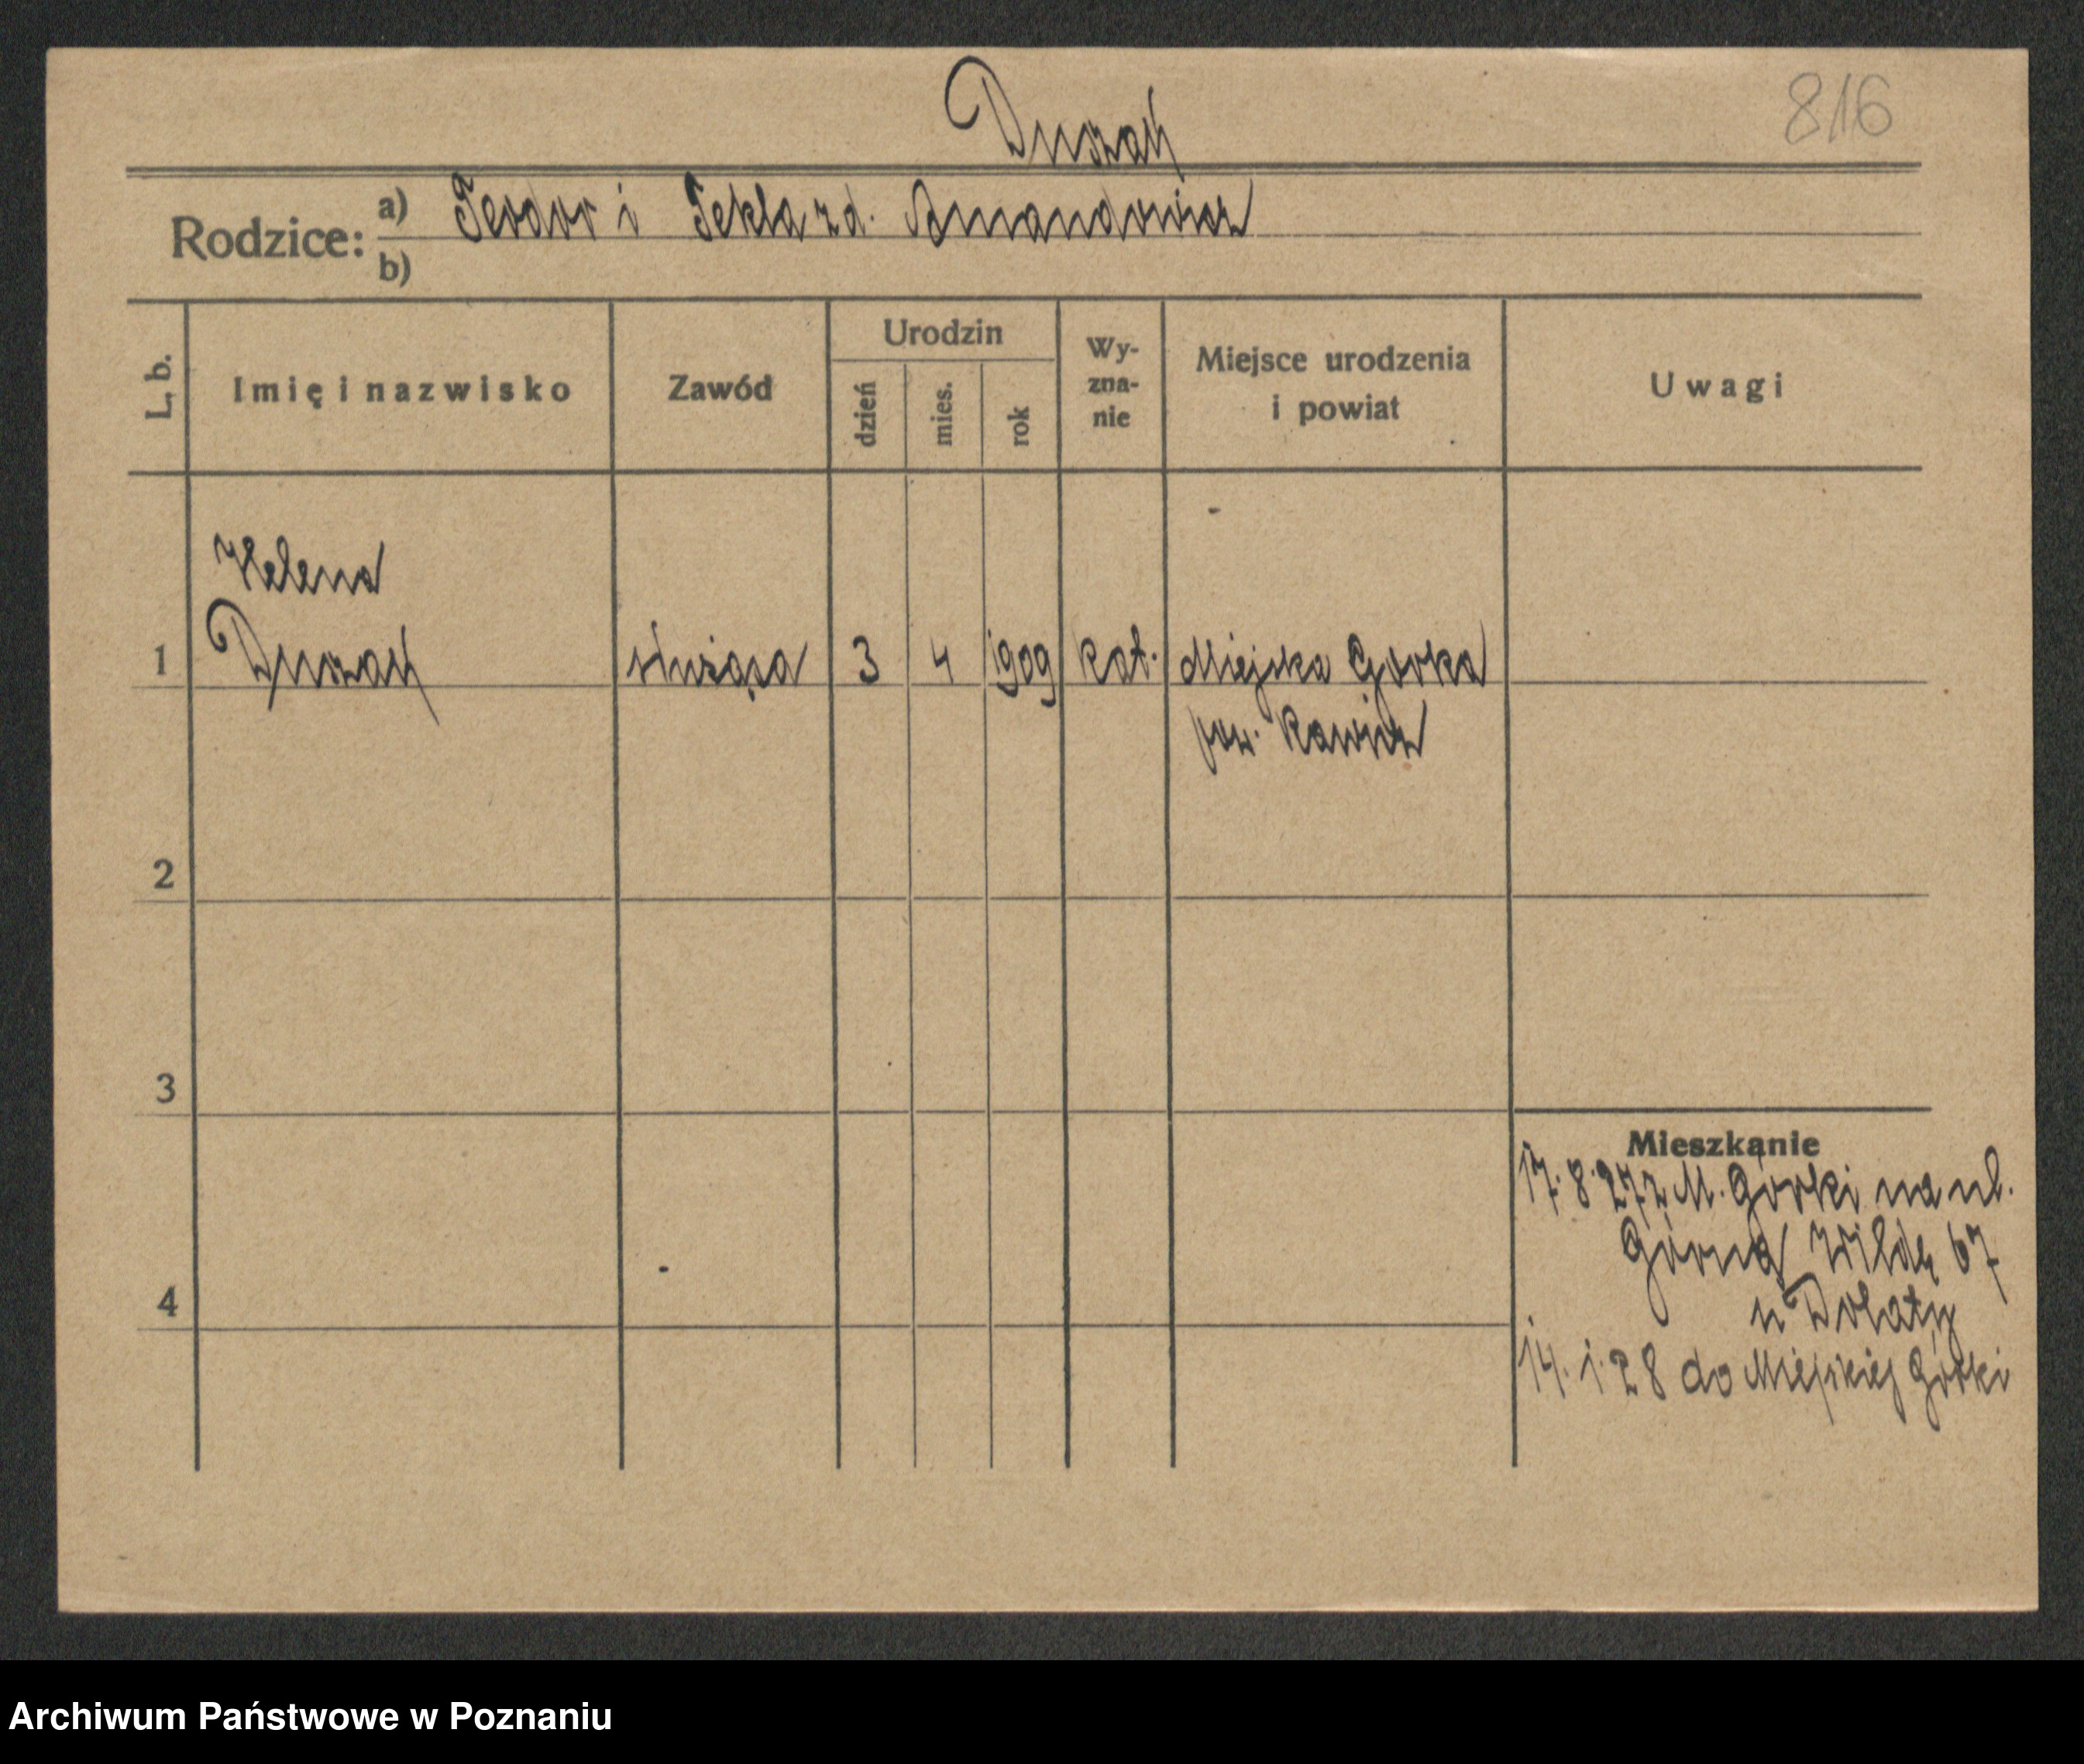 Duszak
816
Rodzice: a) Teodor i Tekla zd. Amandowicz
b)
L. b.
Imię i nazwisko
Zawód
Urodzin
dzień
mies.
rok
Wy-
zna-
nie
Miejsce urodzenia
i powiat
Uwagi
Helena
1 Duszak służąca 3 4 1909 kat. Miejska Górka
pow. Rawicz
2
3
4
Mieszkanie
17.8.27 z M. Górki na ul.
Górną Wildę 67
u Dolaty
14.1.28 do Miejskiej Górki
Archiwum Państwowe w Poznaniu